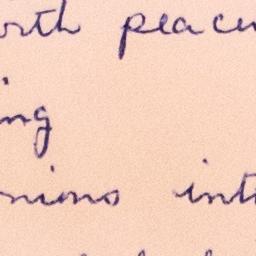 orth peace
ing
nions int